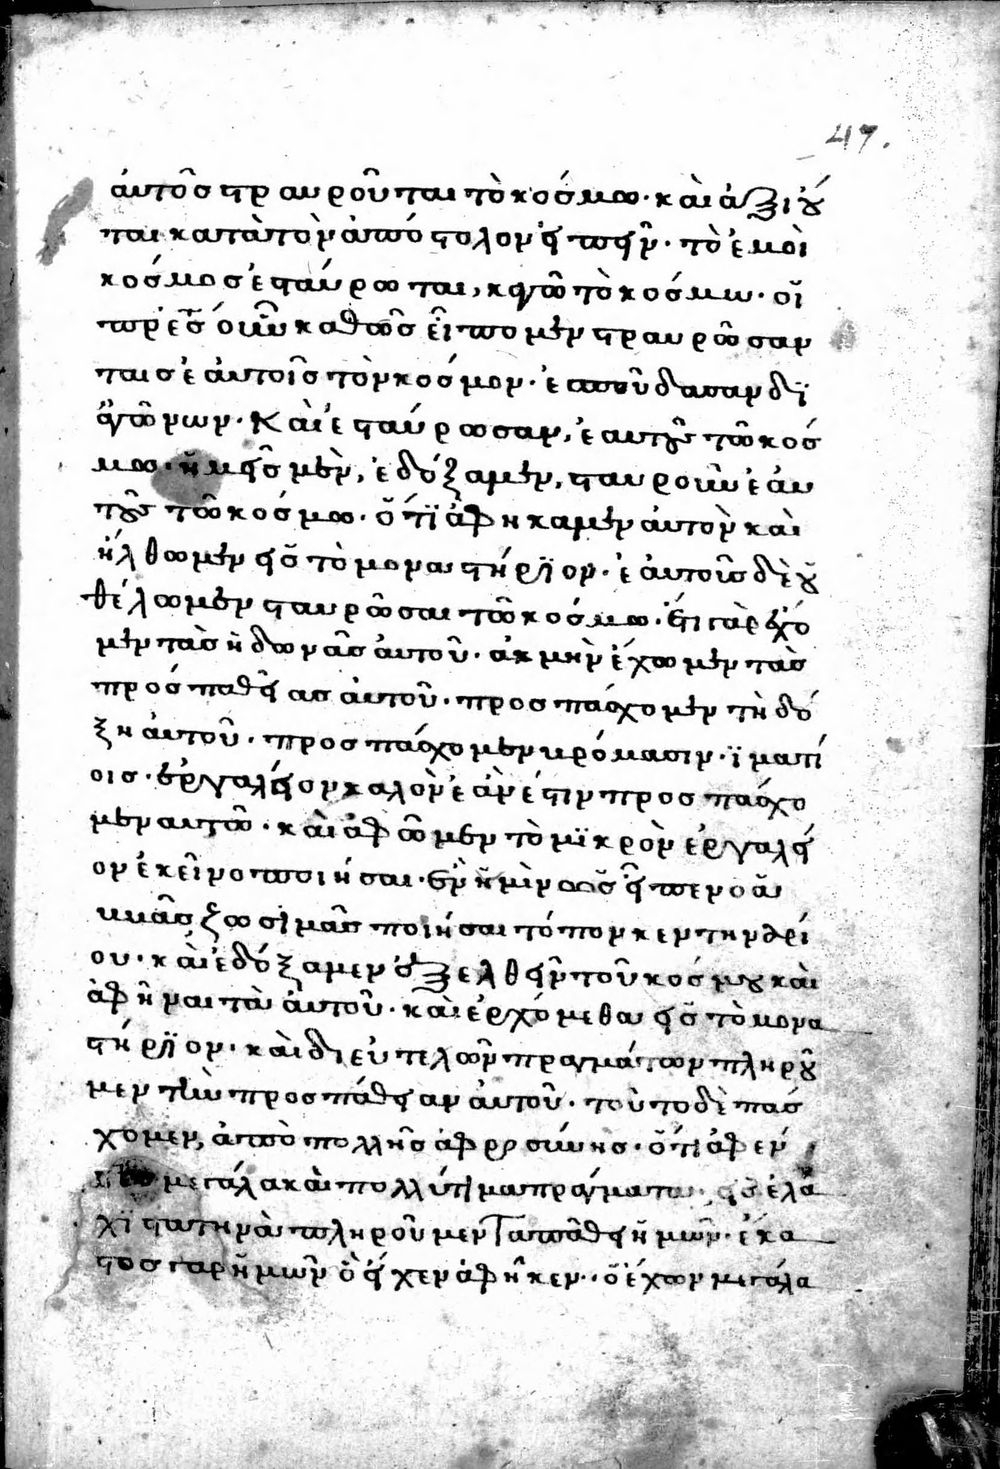 47.
ἀυτὸς στραυροῦται τὸ κόσμω· καὶ ἀξιοῦ
ται κατὰ τὸν ἀπόστολον εἰπεῖν· τὸ ἐμοὶ
κόσμος ἐσταύρωται, κἀγῶ τὸ κόσμω· οἵ
πρὲς οὖν καθῶς εἴπομεν στραυρῶσαν
ταις ἑἀυτοῖς τὸν κόσμον· ἐσπούδασαν δϊ
ἀγώνων· Καὶ ἐσταύρωσαν, ἑαυτοὺς τῶ κόσ
μω· ἡμεῖς μὲν, ἐδόξαμεν, σταυροῦν ἑἀυ
τοὺς τῶ κόσμω· ὅτϊ ἀφήκαμεν ἀυτὸν καὶ
ἤλθωμεν εἰς τὸ μοναστήρϊον· ἑἀυτοῖς δὲ οὐ
θέλωμεν σταυρῶσαι τῶ κόσμω· ἔτι γὰρ ἐχό
μεν τὰς ἡδωνὰς ἀυτοῦ· ἀκμὴν ἔχωμεν τὰς
πρόσπαθείας ἀυτοῦ· προσπάσχομεν τῆ δό
ξη ἀυτοῦ· προσπάσχομεν βρόμασιν· ἱματί
οις· ἐργαλεῖον καλὸν ἐὰν ἐστιν προσπάσχο
μεν αυτῶ· καὶ ἀφῶμεν τὸ μϊκρὸν ἐργαλεῖ
ον ἐκεῖνο ποιήσαι· ἐν ἡμὶν ὡς εἶπεν ὁ ἅ
ββᾶς ζωσϊμᾶς ποιήσαι τόπον κεντηνθρί
ου· καὶ ἐδόξαμεν ἐξελθεῖν τοῦ κόσμου καὶ
ἀφῆναι τὰ ἀυτοῦ· καὶ ἐρχόμεθα εἰς τὸ μονα
στήρϊον· καὶ δι εὐτελῶν πραγμάτων πληροῦ
μεν τὴν προσπάθειαν ἀυτοῦ· τοῦτο δὲ πάσ
χομεν, ἀπὸ πολλῆς ἀφροσύνης· ὅτι ἀφέν
τες μεγάλα καὶ πολλύτιμα πράγματα· εἰς ἐλά
χϊστα τηνὰ πληροῦμεν τὰ πάθει ἡμῶν· ἕκα
στος γὰρ ἡμῶν ὃ εἴχεν ἀφῆκεν· ὁ ἔχων μεγάλα